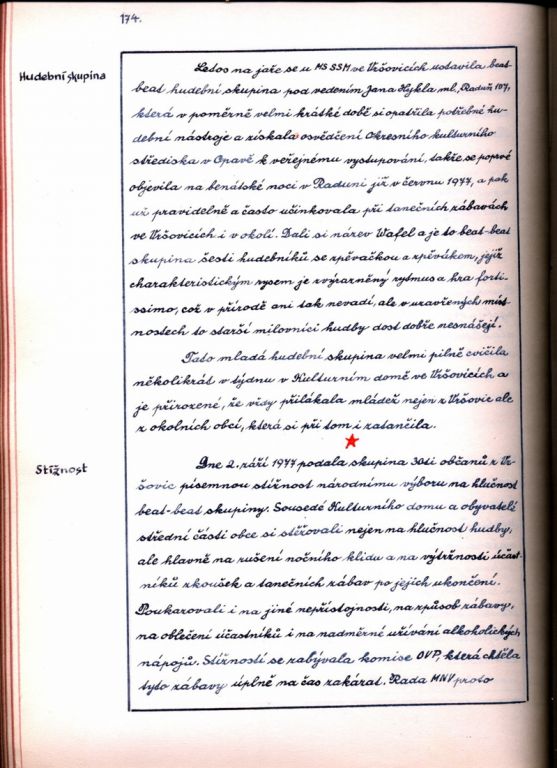 174.
Hudební skupina
Letos na jaře se u MS SSM ve Vršovicích ustavila beat-
beat hudební skupina pod vedením Jana Hykla ml, Raduň 107,
která v poměrně velmi krátké době si opatřila potřebné hu-
dební nástroje a získala osvědčení Okresního kulturního
střediska v Opavě k veřejnému vystupování, takže se poprvé
objevila na benátské noci v Raduni již v červnu 1977, a pak
už pravidelně a často účinkovala při tanečních zábavách
ve Vršovicích i v okolí. Dali si název Wafel a je to beat-beat
skupina šesti hudebníků se zpěvačkou a zpěvákem, jejíž
charakteristickým rysem je zvýrazněný rytmus a hra forti-
ssimo, což v přírodě ani tak nevadí, ale v uzavřených míst-
nostech to starší milovníci hudby dost dobře nesnášejí.
Tato mladá hudební skupina velmi pilně cvičila
několikrát v týdnu v Kulturním domě ve Vršovicích a
je přirozené, že vždy přilákala mládež nejen z Vršovic ale
z okolních obcí, která si při tom i zatančila.
Stížnost
Dne 2. září 1977 podala skupina 30ti občanů z Vr-
šovic písemnou stížnost národnímu výboru na hlučnost
beat-beat skupiny. Sousedé Kulturního domu a obyvatelé
střední části obce si stěžovali nejen na hlučnost hudby,
ale hlavně na rušení nočního klidu a na výtržnosti účast-
níků zkoušek a tanečních zábav po jejich ukončení.
Poukazovali i na jiné nepřístojnosti, na způsob zábavy,
na oblečení účastníků i na nadměrné užívání alkoholických
nápojů. Stížností se zabývala komise OVP, která chtěla
tyto zábavy úplně na čas zakázat. Rada MNV proto